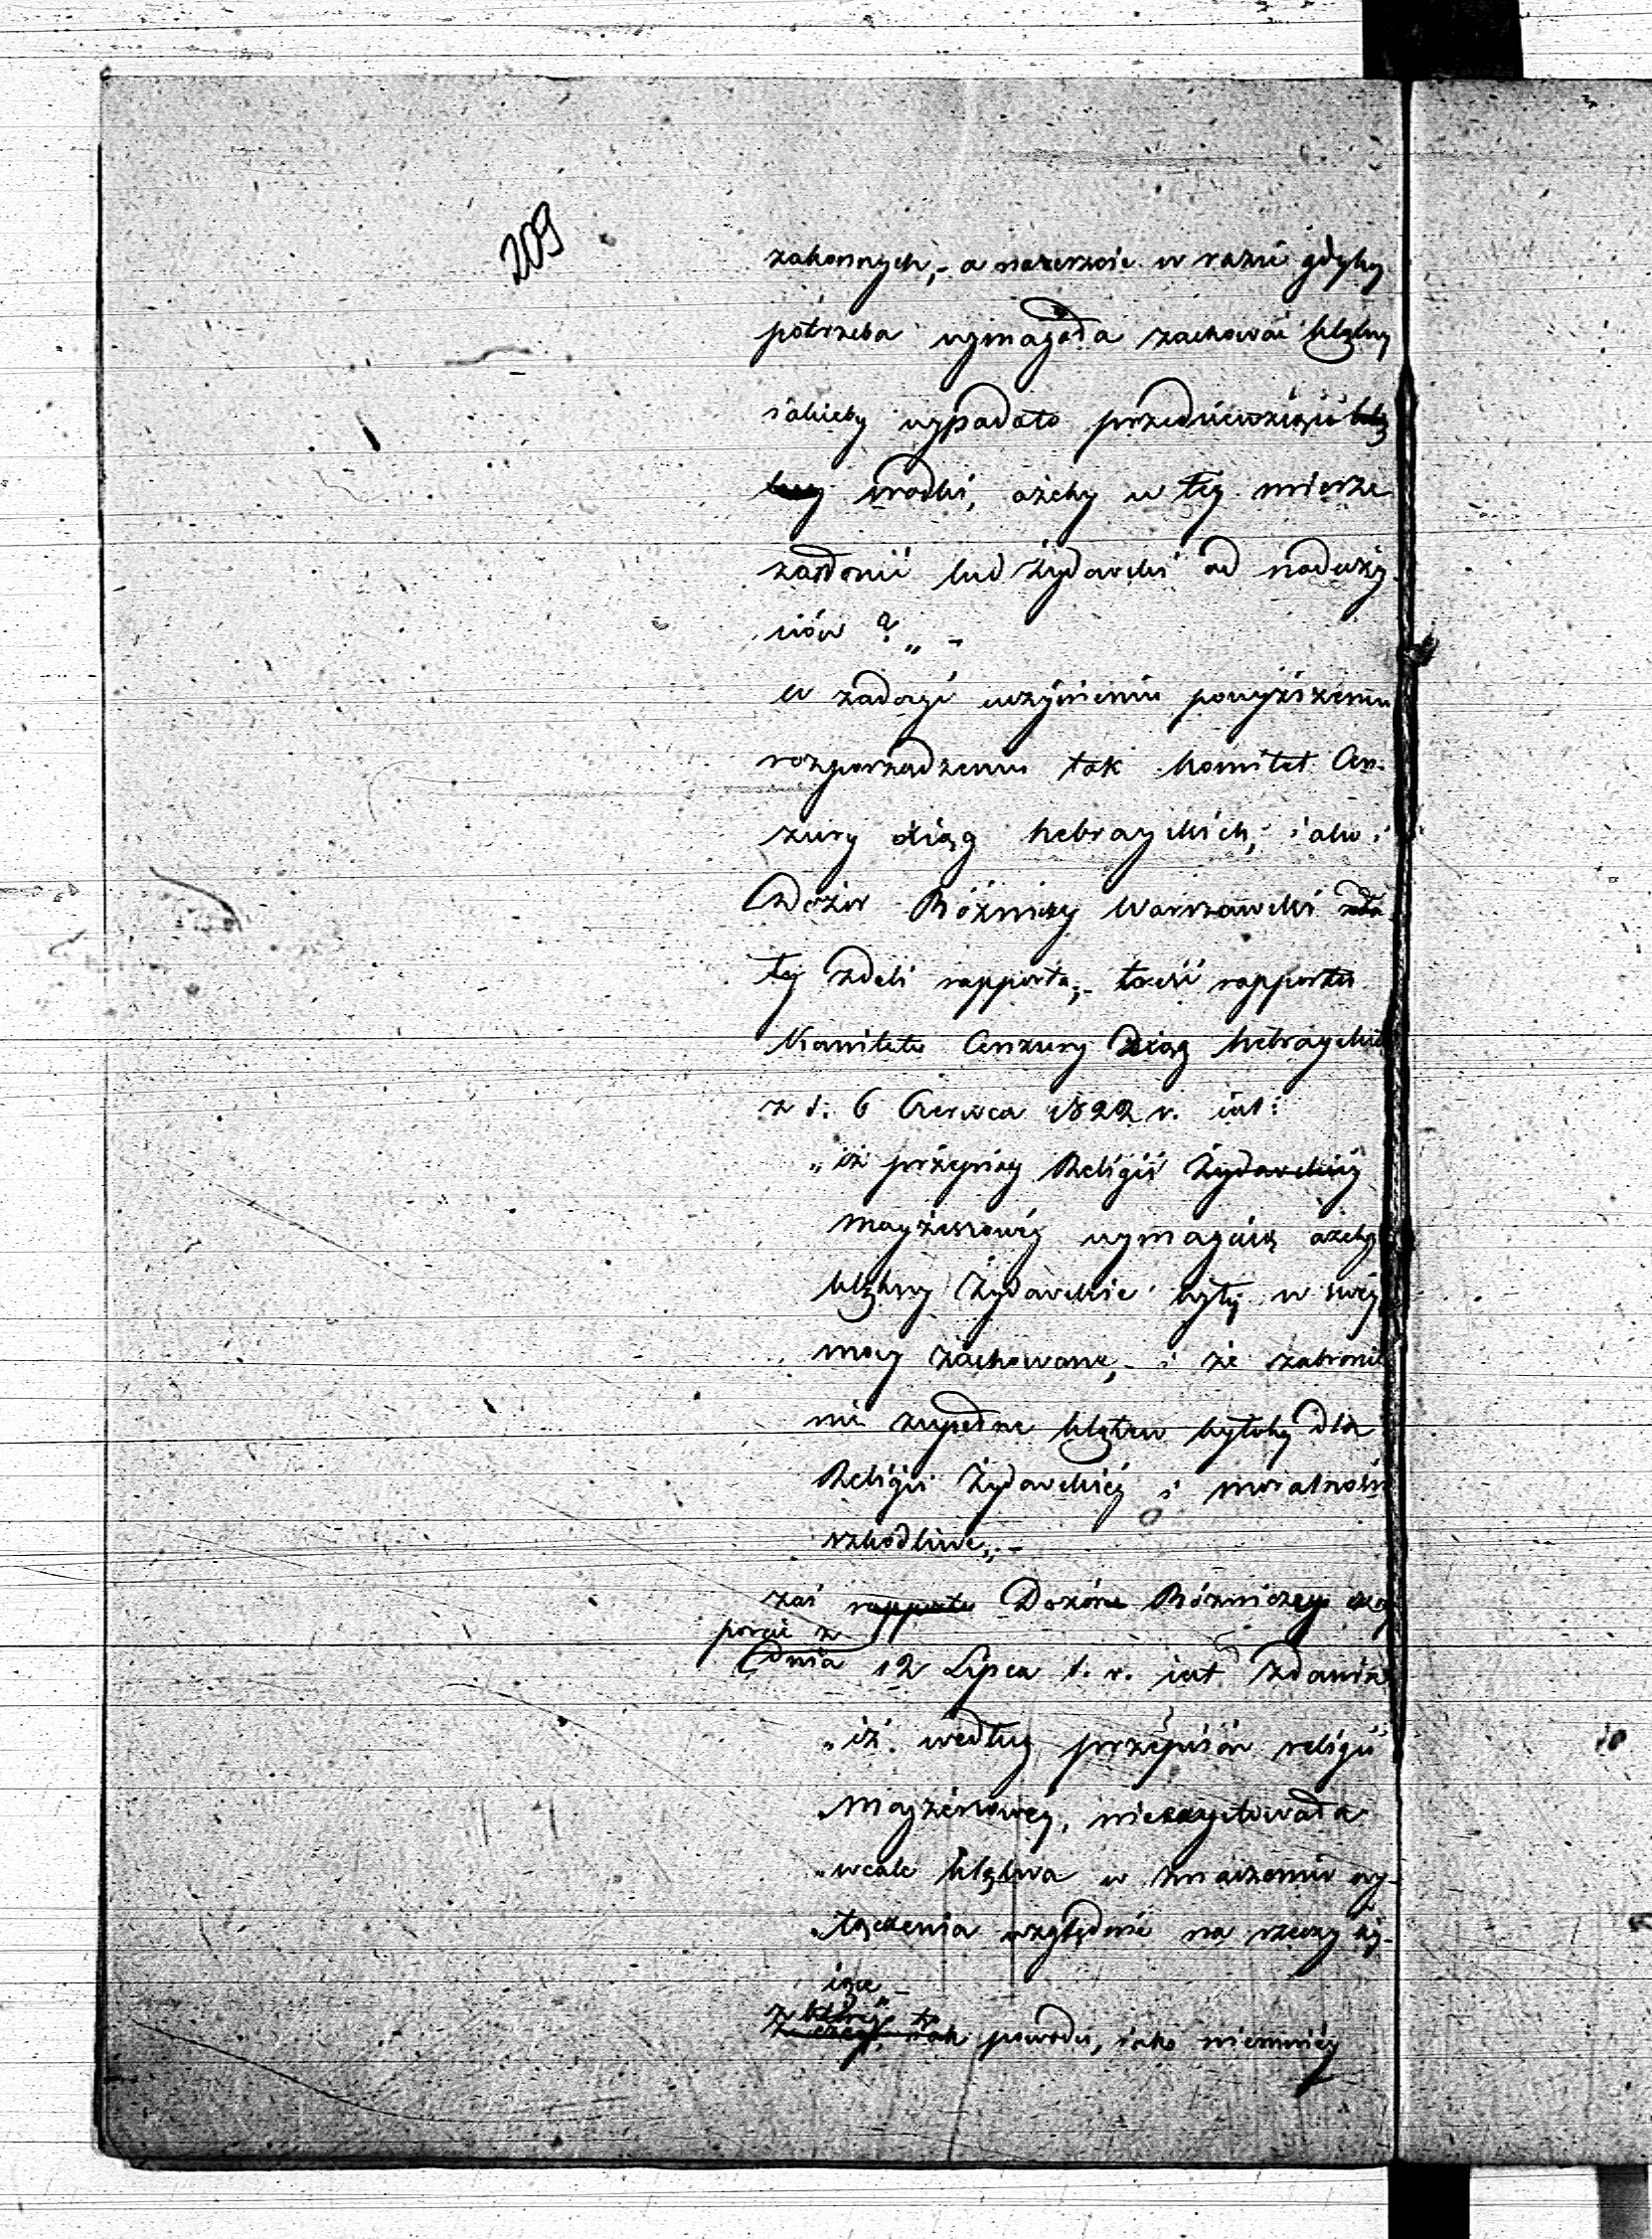 209
zakonnych,- a nareszcie w razie gdyby
potrzeba wymagała zachować klątwy
iakieby wypadało przedsiewziąść
środki, ażeby w tey mierze
zasłonić lud Żydowski od naduży-
ciów ?„ -
W zadosyć uczynieniu powyższemu
rozporządzeniu tak Komitet Cen-
zury xiąg hebrayskich, iako i
Dozór Bóźniczy Warszawski
zdali rapporta,- treść rapportu
Komitetu Cenzury xiąg hebrayskich
z d: 6 Czerwca 1822 r. iest:
„iż przepisy Religii Żydowskiéy
Mayżeszowéy wymagaią ażeby
klątwy Żydowskie były w swéy
mocy zachowane,- i że zabronie-
nie zupełne klątew byłoby dla
Religii Żydowskiéy i moralności
szkodliwe„.-
zaś rapportu Dozóru Bóźniczego
porcie z
Dnia 12 Lipca t. r. iest zdania
„iż według przepisów religii
„Mojżeszowéy, nieexystowała
„wcale klątwa w znaczeniu wy-
„łączenia względnie na rzeczy ży-
iące„-
z któréy to
z czego, tak powodu, iako niemniéy